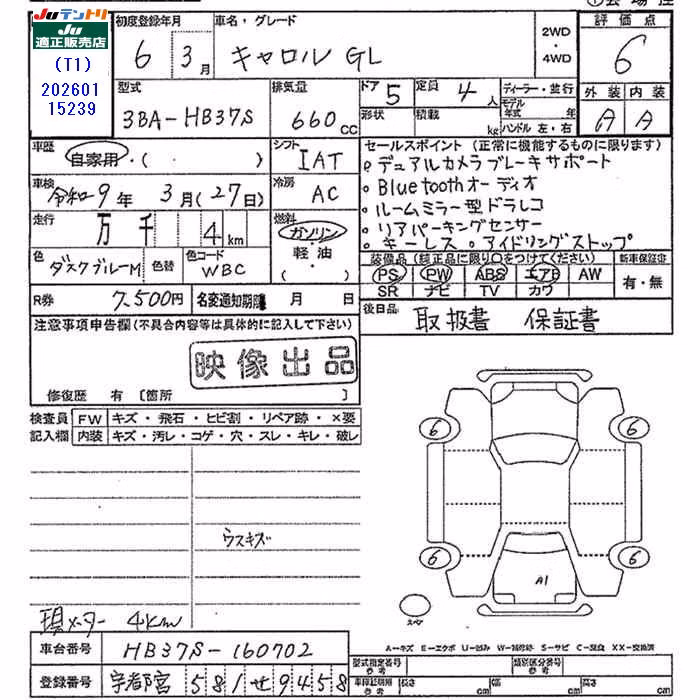 Juテントリ
Ju
適正販売店
(T1)
202601
15239
初度登録年月 車名・グレード 評価点
6 3月 キャロル GL 2WD・4WD 6
型式 排気量 ドア 5 定員 4人 ディーラー・並行 外装 内装
3BA-HB37S 660cc 形状 積載 kg モデル年式 年 A A
ハンドル 左・右
車歴 自家用・( ・ ) シフト IAT セールスポイント(正常に機能するものに限ります)
。デュアルカメラブレーキサポート
車検 令和9年3月(27日) 冷房 AC 。Bluetoothオーディオ
。ルームミラー型ドラレコ
走行 万 千 4km 燃料 ガソリン・軽油・( ) 。リアパーキングセンサー
。キーレス 。アイドリングストップ
色 ダスクブルーM 色替 色コード WBC 装備品(純正品に限り○をつけてください) 新車保証書
PS PW ABS エアB AW 有・無
SR ナビ TV カワ
R券 7,500円 名変通知期限 月 日 後日品 取扱書 保証書
注意事項申告欄(不具合内容等は具体的に記入して下さい)
映像出品
修復歴 有 〔箇所 〕
検査員 FW キズ・飛石・ヒビ割・リペア跡・×要
記入欄 内装 キズ・汚レ・コゲ・穴・スレ・キレ・破レ
6 6
ウスキズ
6 6
A1
スペア
現メーター 4km
A-キズ E-エクボ U-凹み W-補修跡 S-サビ C-腐食 XX-交換済
車台番号 HB37S-160702 型式指定番号 参考 類別区分番号 参考
登録番号 宇都宮 581 せ 9458 車検証記載 参考 長さ cm 幅 cm 高さ cm